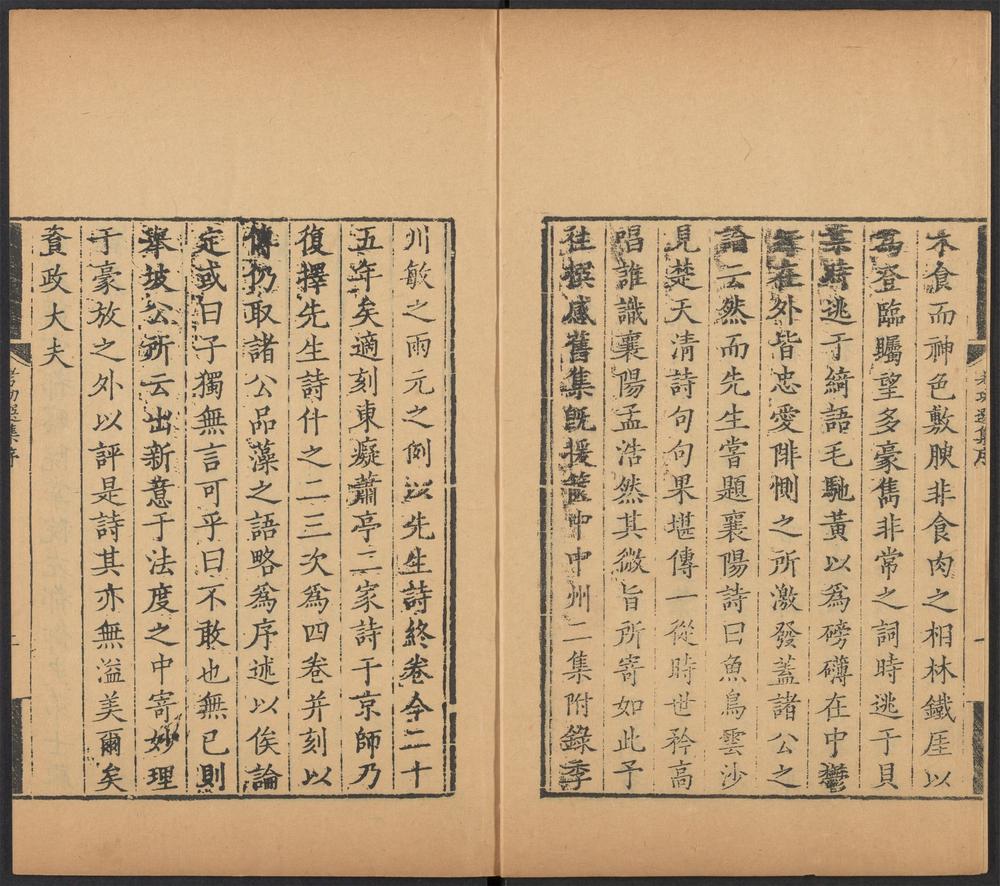 木食而神色敷腴非食肉之相林鐵厓以
為登臨矚望多豪雋非常之詞時逃于貝
葉時逃于綺語毛馳黃以為磅礴在中鬱
在外皆忠愛悱惻之所激發蓋諸公之
論云然而先生嘗題襄陽詩曰魚鳥雲沙
見楚天清詩句句果堪傳一從時世矜高
唱誰識襄陽孟浩然其微旨所寄如此予
往撰感舊集旣援篋中中州二集附錄季
川敏之雨元之例以先生詩終卷今二十
五年矣適刻東癡蕭亭二家詩于京師乃
復擇先生詩什之二三次為四卷并刻以
傳仍取諸公品藻之語略為序述以俟論
定或曰子獨無言可乎曰不敢也無已則
舉坡公所云出新意于法度之中寄妙理
于豪放之外以評是詩其亦無溢美爾矣
資政大夫
考功選集序